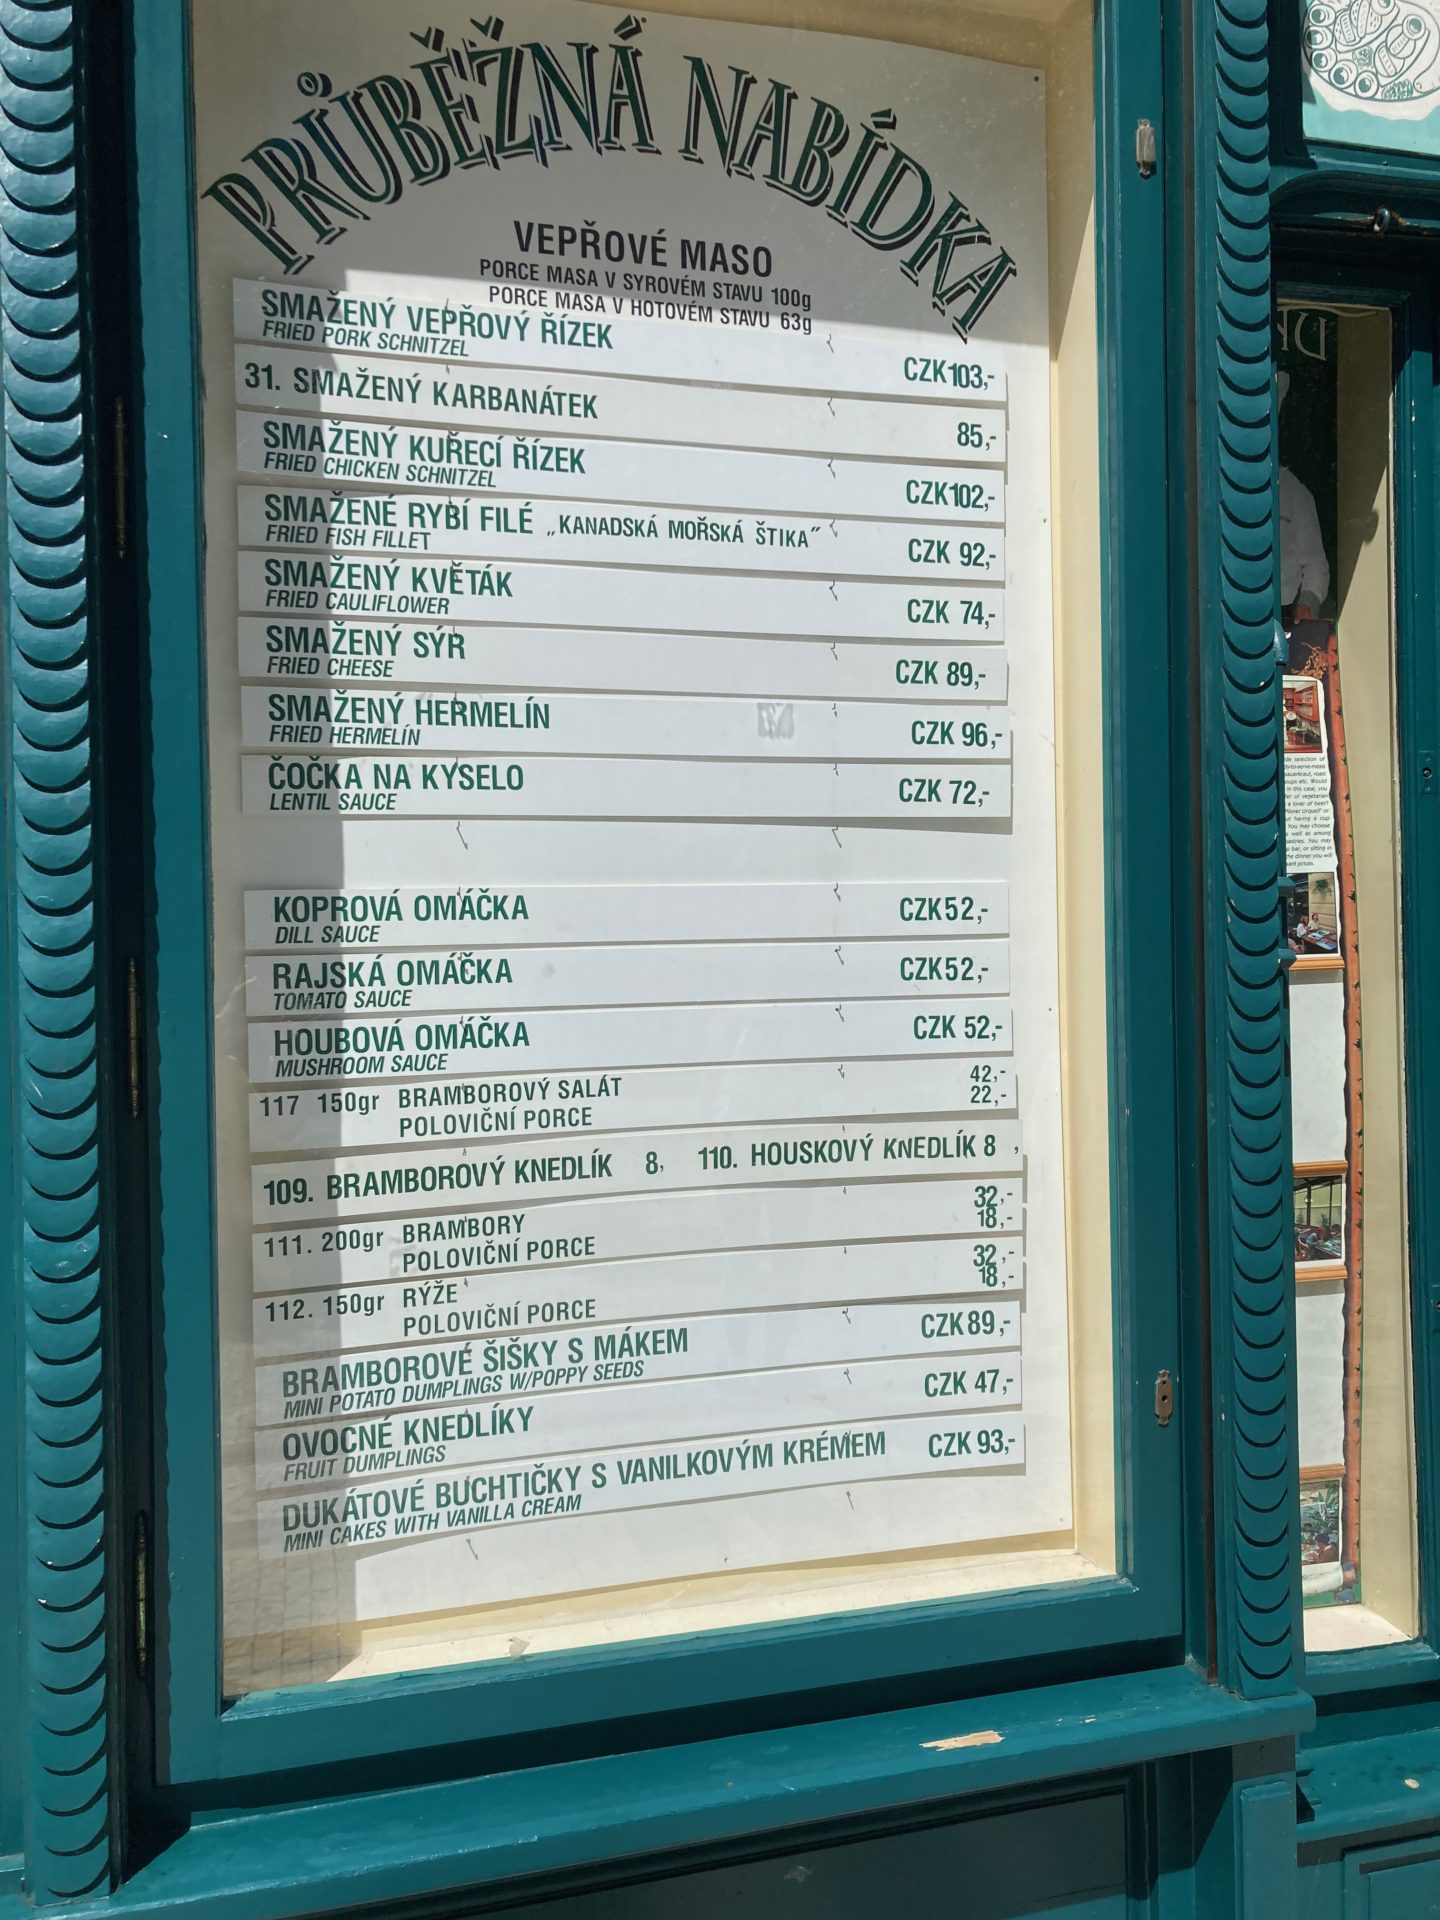 PRŮBĚŽNÁ NABÍDKA
VEPŘOVÉ MASO
PORCE MASA V SYROVÉM STAVU 100g
PORCE MASA V HOTOVÉM STAVU 63g
SMAŽENÝ VEPŘOVÝ ŘÍZEK CZK103,-
FRIED PORK SCHNITZEL
31. SMAŽENÝ KARBANÁTEK 85,-
SMAŽENÝ KUŘECÍ ŘÍZEK CZK102,-
FRIED CHICKEN SCHNITZEL
SMAŽENÉ RYBÍ FILÉ „KANADSKÁ MOŘSKÁ ŠTIKA" CZK 92,-
FRIED FISH FILLET
SMAŽENÝ KVĚTÁK CZK 74,-
FRIED CAULIFLOWER
SMAŽENÝ SÝR CZK 89,-
FRIED CHEESE
SMAŽENÝ HERMELÍN CZK 96,-
FRIED HERMELÍN
ČOČKA NA KYSELO CZK 72,-
LENTIL SAUCE
KOPROVÁ OMÁČKA CZK52,-
DILL SAUCE
RAJSKÁ OMÁČKA CZK52,-
TOMATO SAUCE
HOUBOVÁ OMÁČKA CZK 52,-
MUSHROOM SAUCE
117 150gr BRAMBOROVÝ SALÁT 42,-
POLOVIČNÍ PORCE 22,-
109. BRAMBOROVÝ KNEDLÍK 8, 110. HOUSKOVÝ KNEDLÍK 8 ,
111. 200gr BRAMBORY 32,-
POLOVIČNÍ PORCE 18,-
112. 150gr RÝŽE 32,-
POLOVIČNÍ PORCE 18,-
BRAMBOROVÉ ŠIŠKY S MÁKEM CZK89,-
MINI POTATO DUMPLINGS W/POPPY SEEDS
OVOCNÉ KNEDLÍKY CZK 47,-
FRUIT DUMPLINGS
DUKÁTOVÉ BUCHTIČKY S VANILKOVÝM KRÉMEM CZK 93,-
MINI CAKES WITH VANILLA CREAM
selection of
sauerkraut, roast
etc. Would
in this case, you
of vegetarian
a lover of beer?
or
having a cup
You may choose
well as among
You may
bar, or sitting in
the dinner you will
prices.